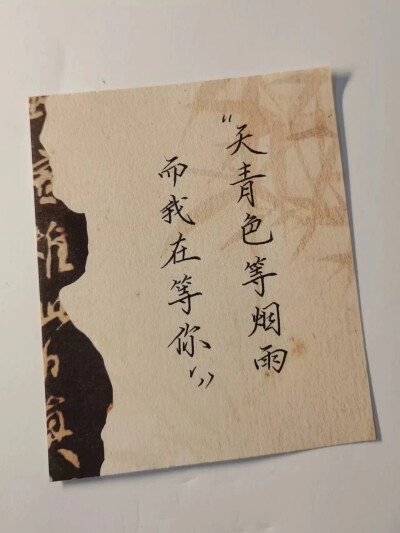 “天青色等烟雨
而我在等你”